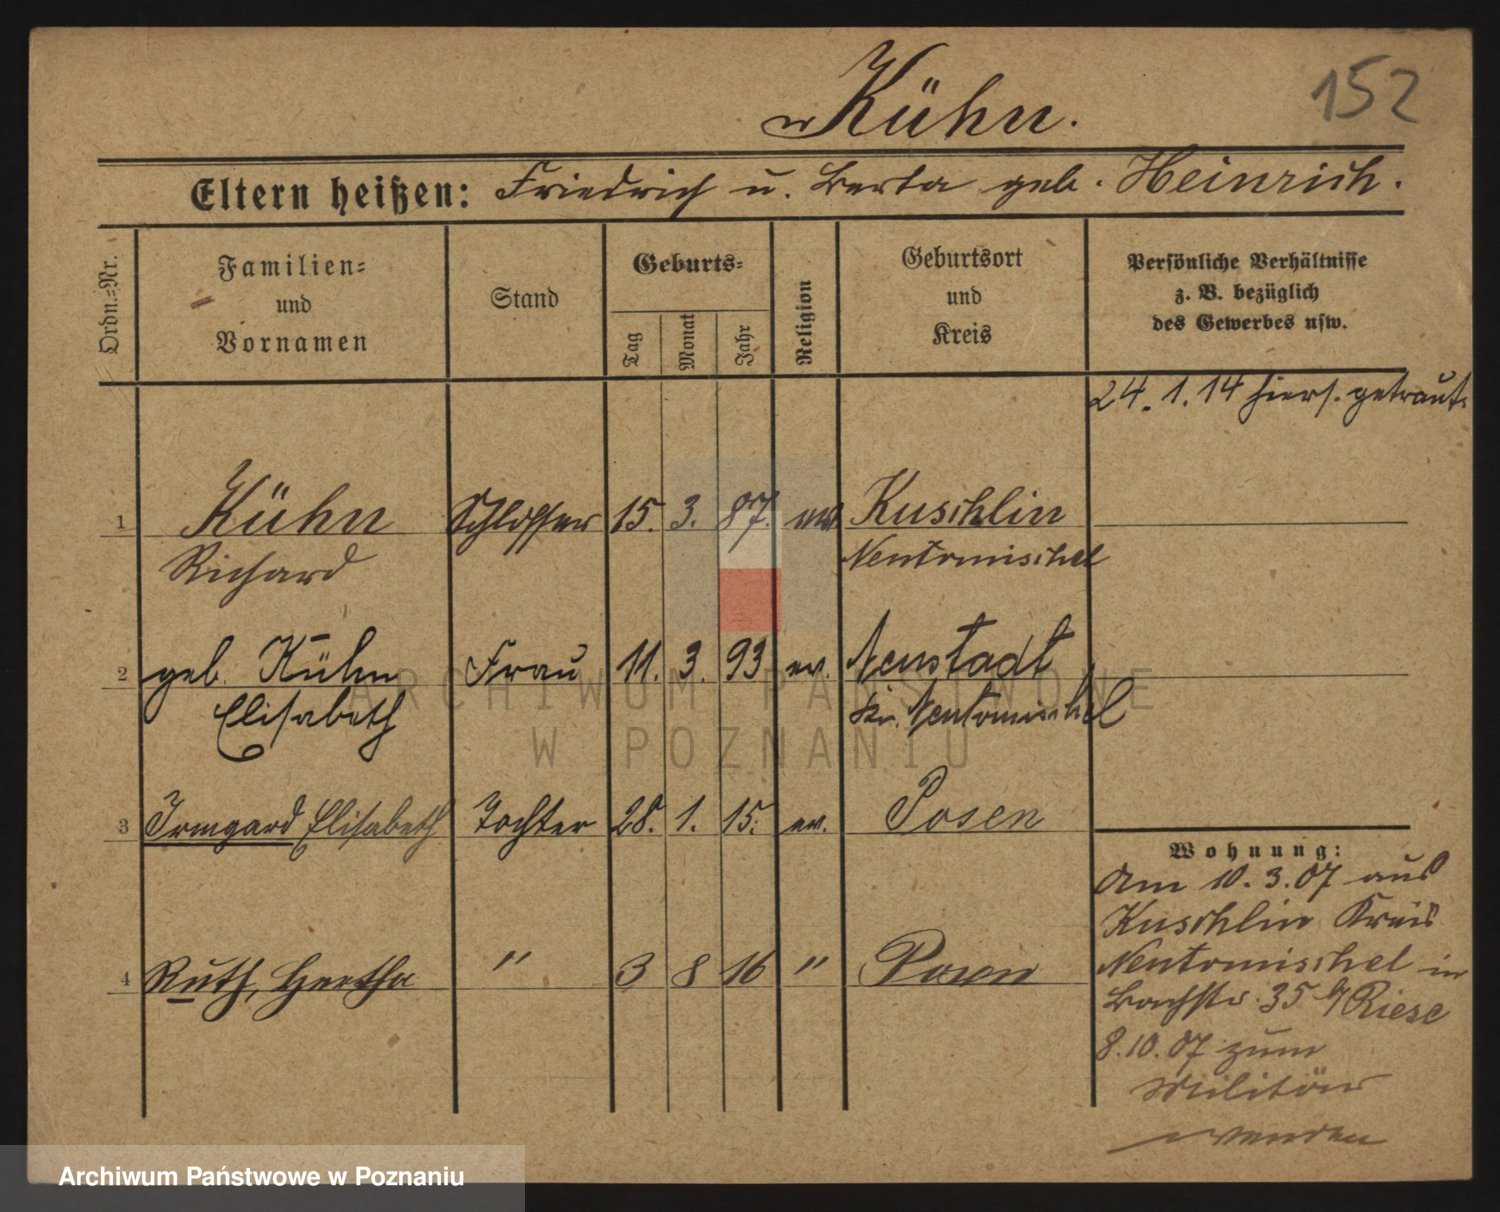 152
Kühn.
Eltern heißen: Friedrich u. Berta geb. Heinrich.
Ordn.-Nr.
Familien-
und
Vornamen
Stand
Geburts-
Tag
Monat
Jahr
Religion
Geburtsort
und
Kreis
Persönliche Verhältnisse
z. B. bezüglich
des Gewerbes usw.
24. 1. 14 hiers. getraut.
1 Kühn Schlosser 15. 3. 87. ev. Kuschlin
Richard Neutomischel
2 geb. Kühn Frau 11. 3. 93 ev. Neustadt
Elisabeth Kr. Neutomischel
3 Irmgard Elisabeth Tochter 28. 1. 15. ev. Posen
4 Ruth, Hertha " 3 8 16 " Posen
Wohnung:
Am 10. 3. 07 aus
Kuschlin Kreis
Neutomischel in
Bachstr. 35 b/ Riese
8. 10. 07 zum
Militär
wenden
ARCHIWUM PAŃSTWOWE
W POZNANIU
Archiwum Państwowe w Poznaniu